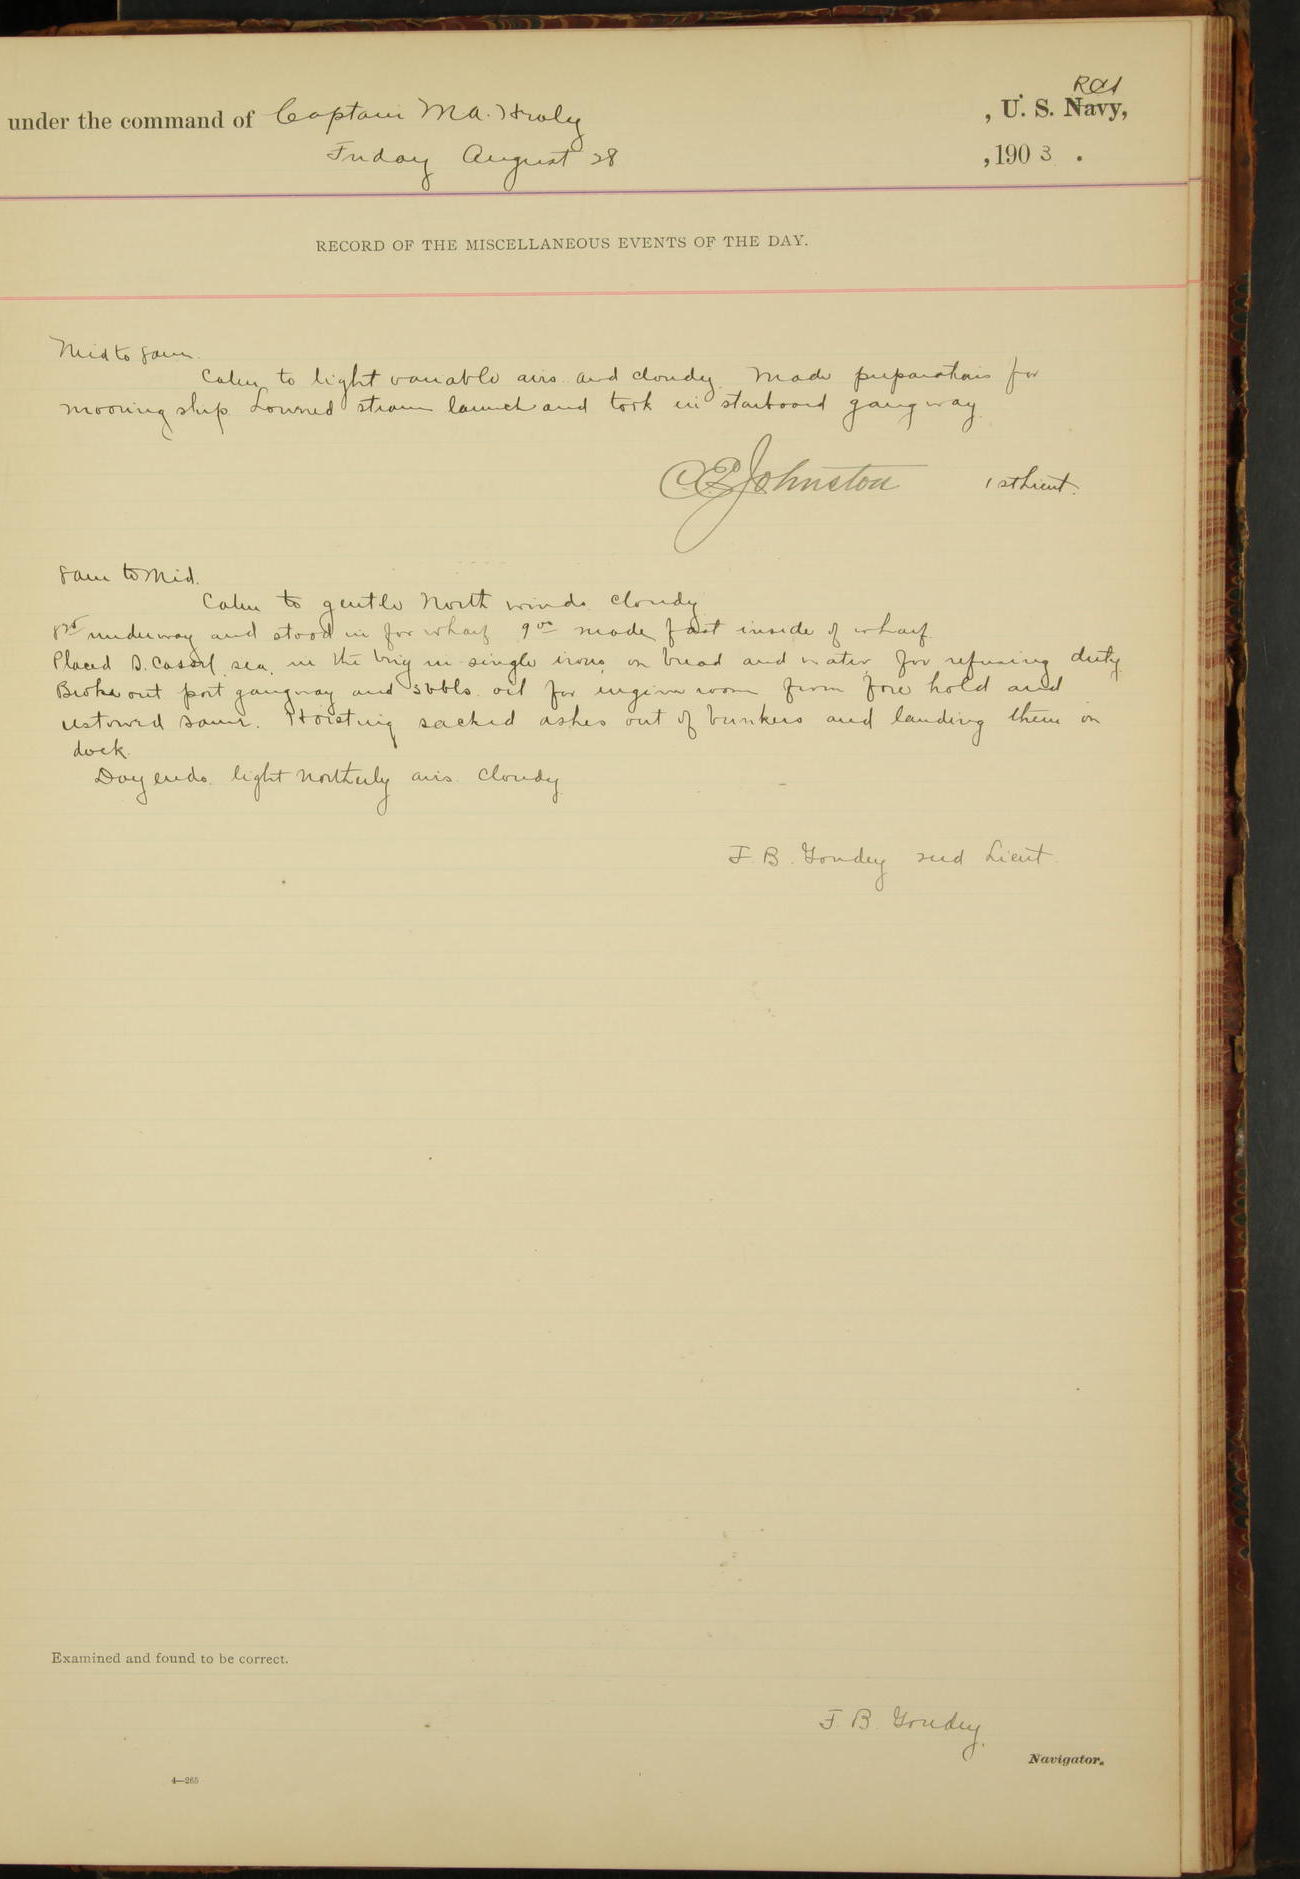 under the command of Captain M A. Healy , U. S. Navy, RCS
Friday August 28 , 1903 .
RECORD OF THE MISCELLANEOUS EVENTS OF THE DAY.
Mid to 8am.
Calm to light variable airs and cloudy. Made preparations for
mooring ship. Lowered steam launch and took in starboard gangway.
Johnston 1st Lieut.
8am to Mid.
Calm to gentle North winds cloudy
underway and stood in for wharf 9 00 made fast inside of wharf.
Placed D. sea. in the brig in single irons on bread and water for refusing duty.
Broke out port gangway and 3 bbls. oil for engine room from fore hold and
restowed same. Hoisting sacked ashes out of bunkers and landing them on
dock.
Day ends light northerly airs. Cloudy
F. B. Goudey 2nd Lieut.
Examined and found to be correct.
F. B. Goudey.
Navigator.
4—265